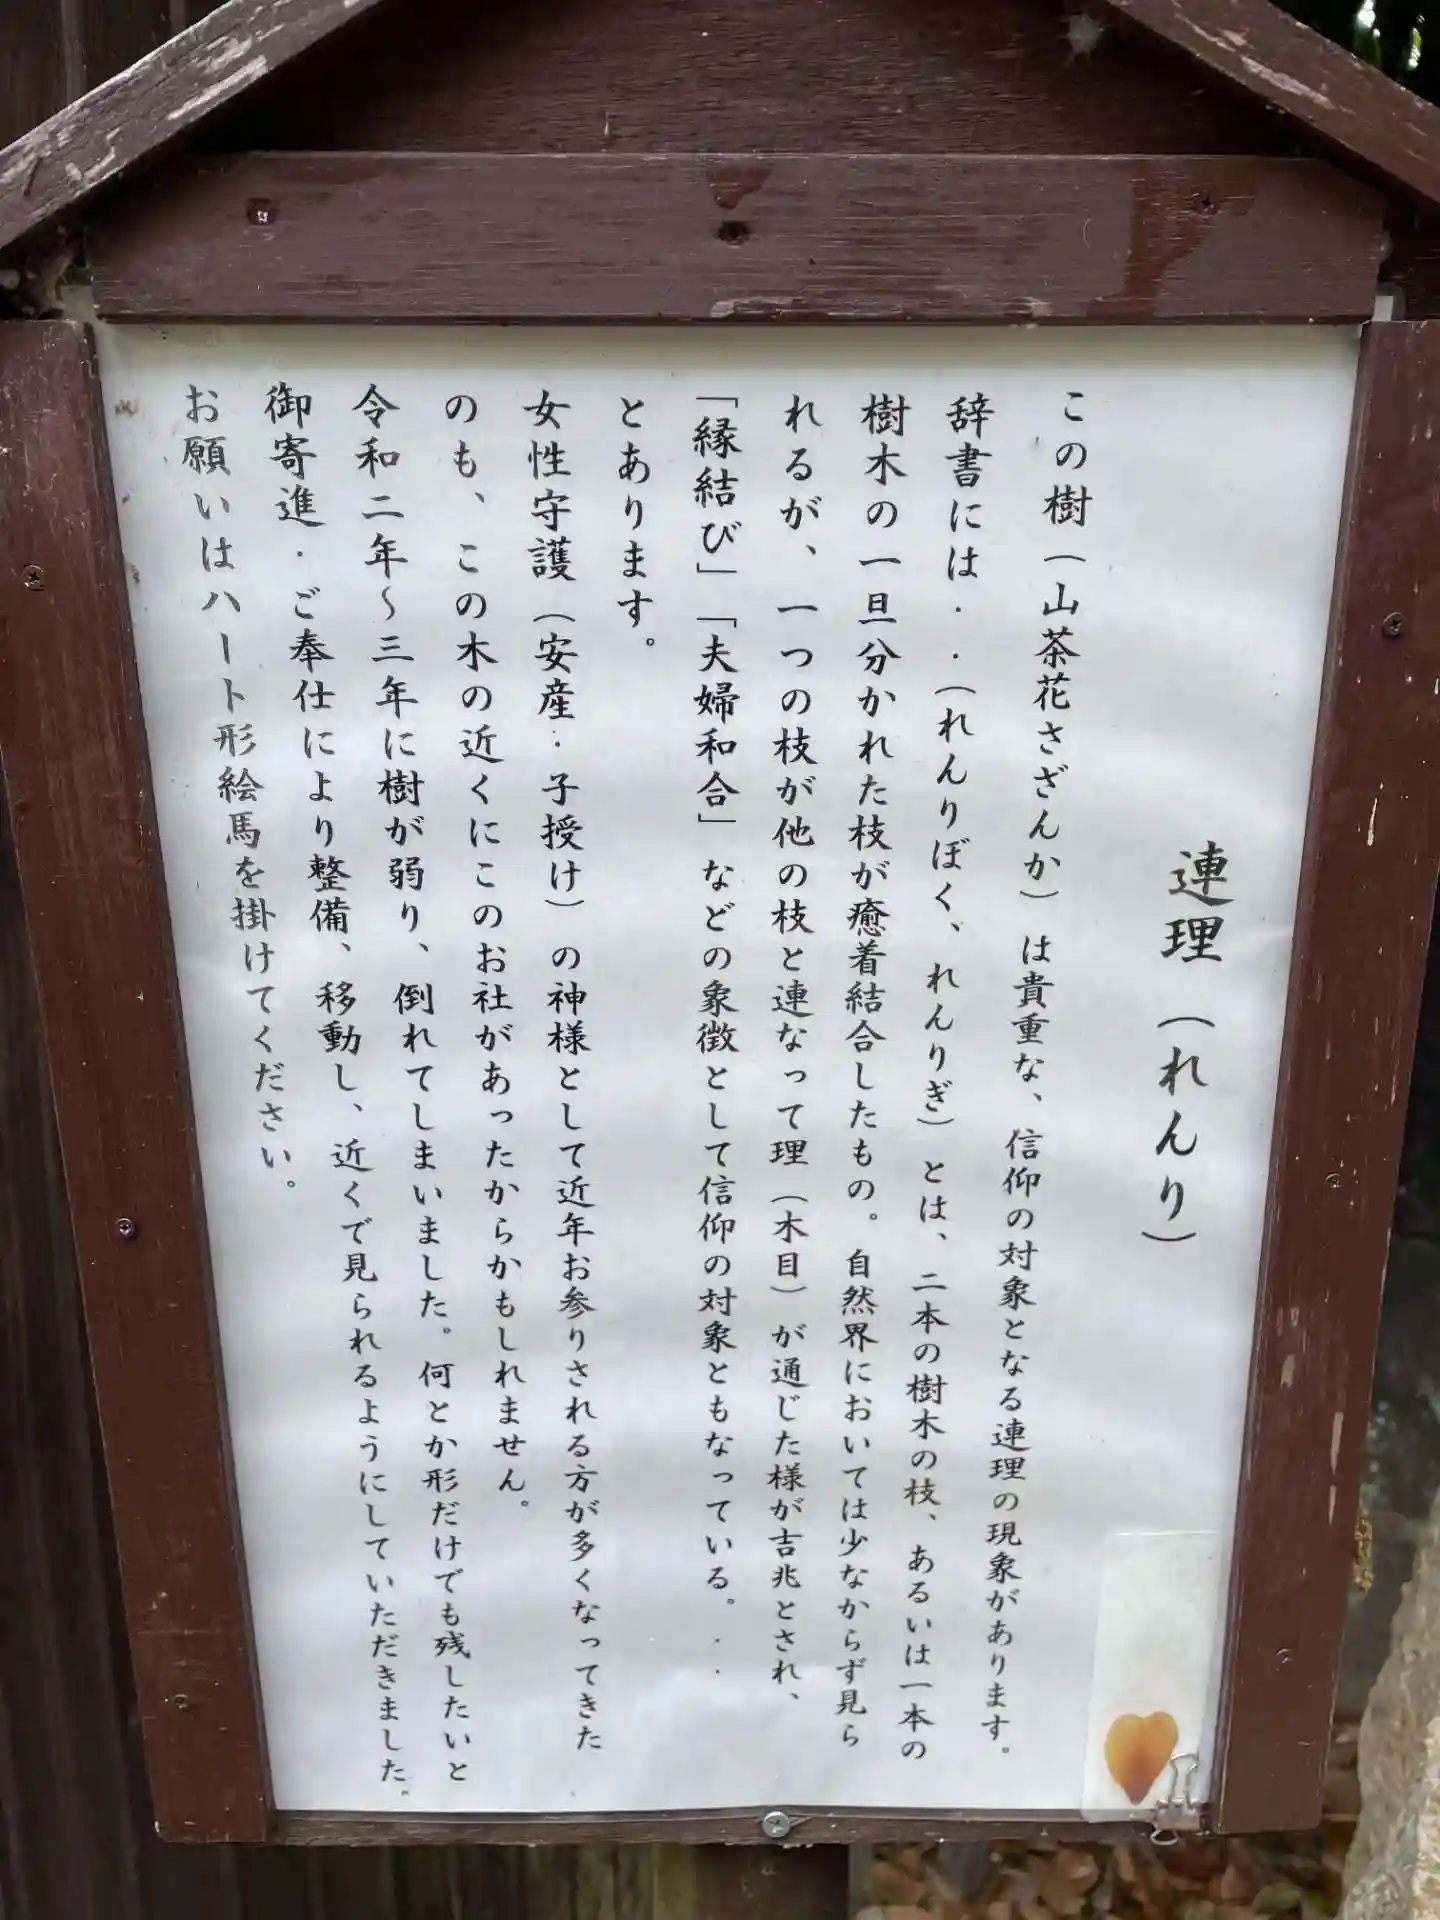 連理（れんり）
この樹（山茶花さざんか）は貴重な、信仰の対象となる連理の現象があります。
辞書には・・（れんりぼく、れんりぎ）とは、二本の樹木の枝、あるいは一本の
樹木の一旦分かれた枝が癒着結合したもの。自然界においては少なからず見ら
れるが、一つの枝が他の枝と連なって理（木目）が通じた様が吉兆とされ、
「縁結び」「夫婦和合」などの象徴として信仰の対象ともなっている。・・
とあります。
女性守護（安産・子授け）の神様として近年お参りされる方が多くなってきた
のも、この木の近くにこのお社があったからかもしれません。
令和二年～三年に樹が弱り、倒れてしまいました。何とか形だけでも残したいと
御寄進・ご奉仕により整備、移動し、近くで見られるようにしていただきました。
お願いはハート形絵馬を掛けてください。